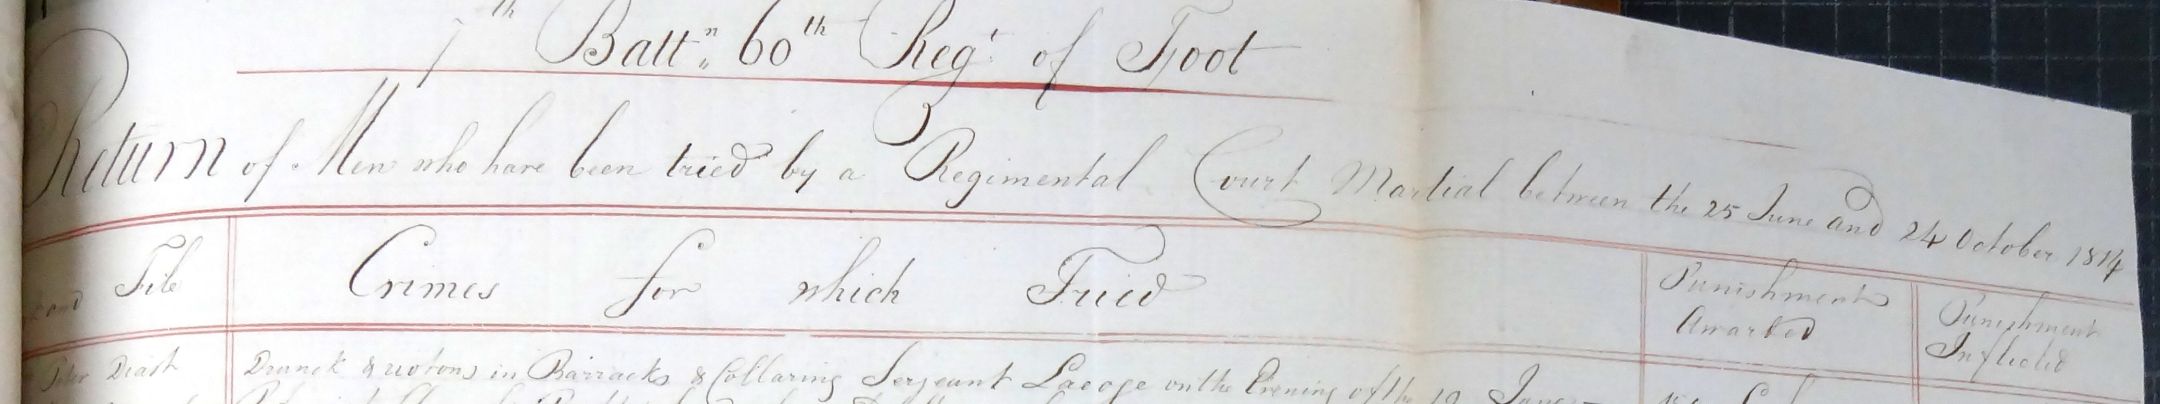 7th Battn 60th Regt of Foot
Return of Men who have been tried by a Regimental Court Martial between the 25 June and 24 October 1814
and File
Crimes for which Tried
Punishment Awarded
Punishment Inflicted
Peter Drunk & riotous in Barracks & Collaring Serjeant on the Evening of the 19 June